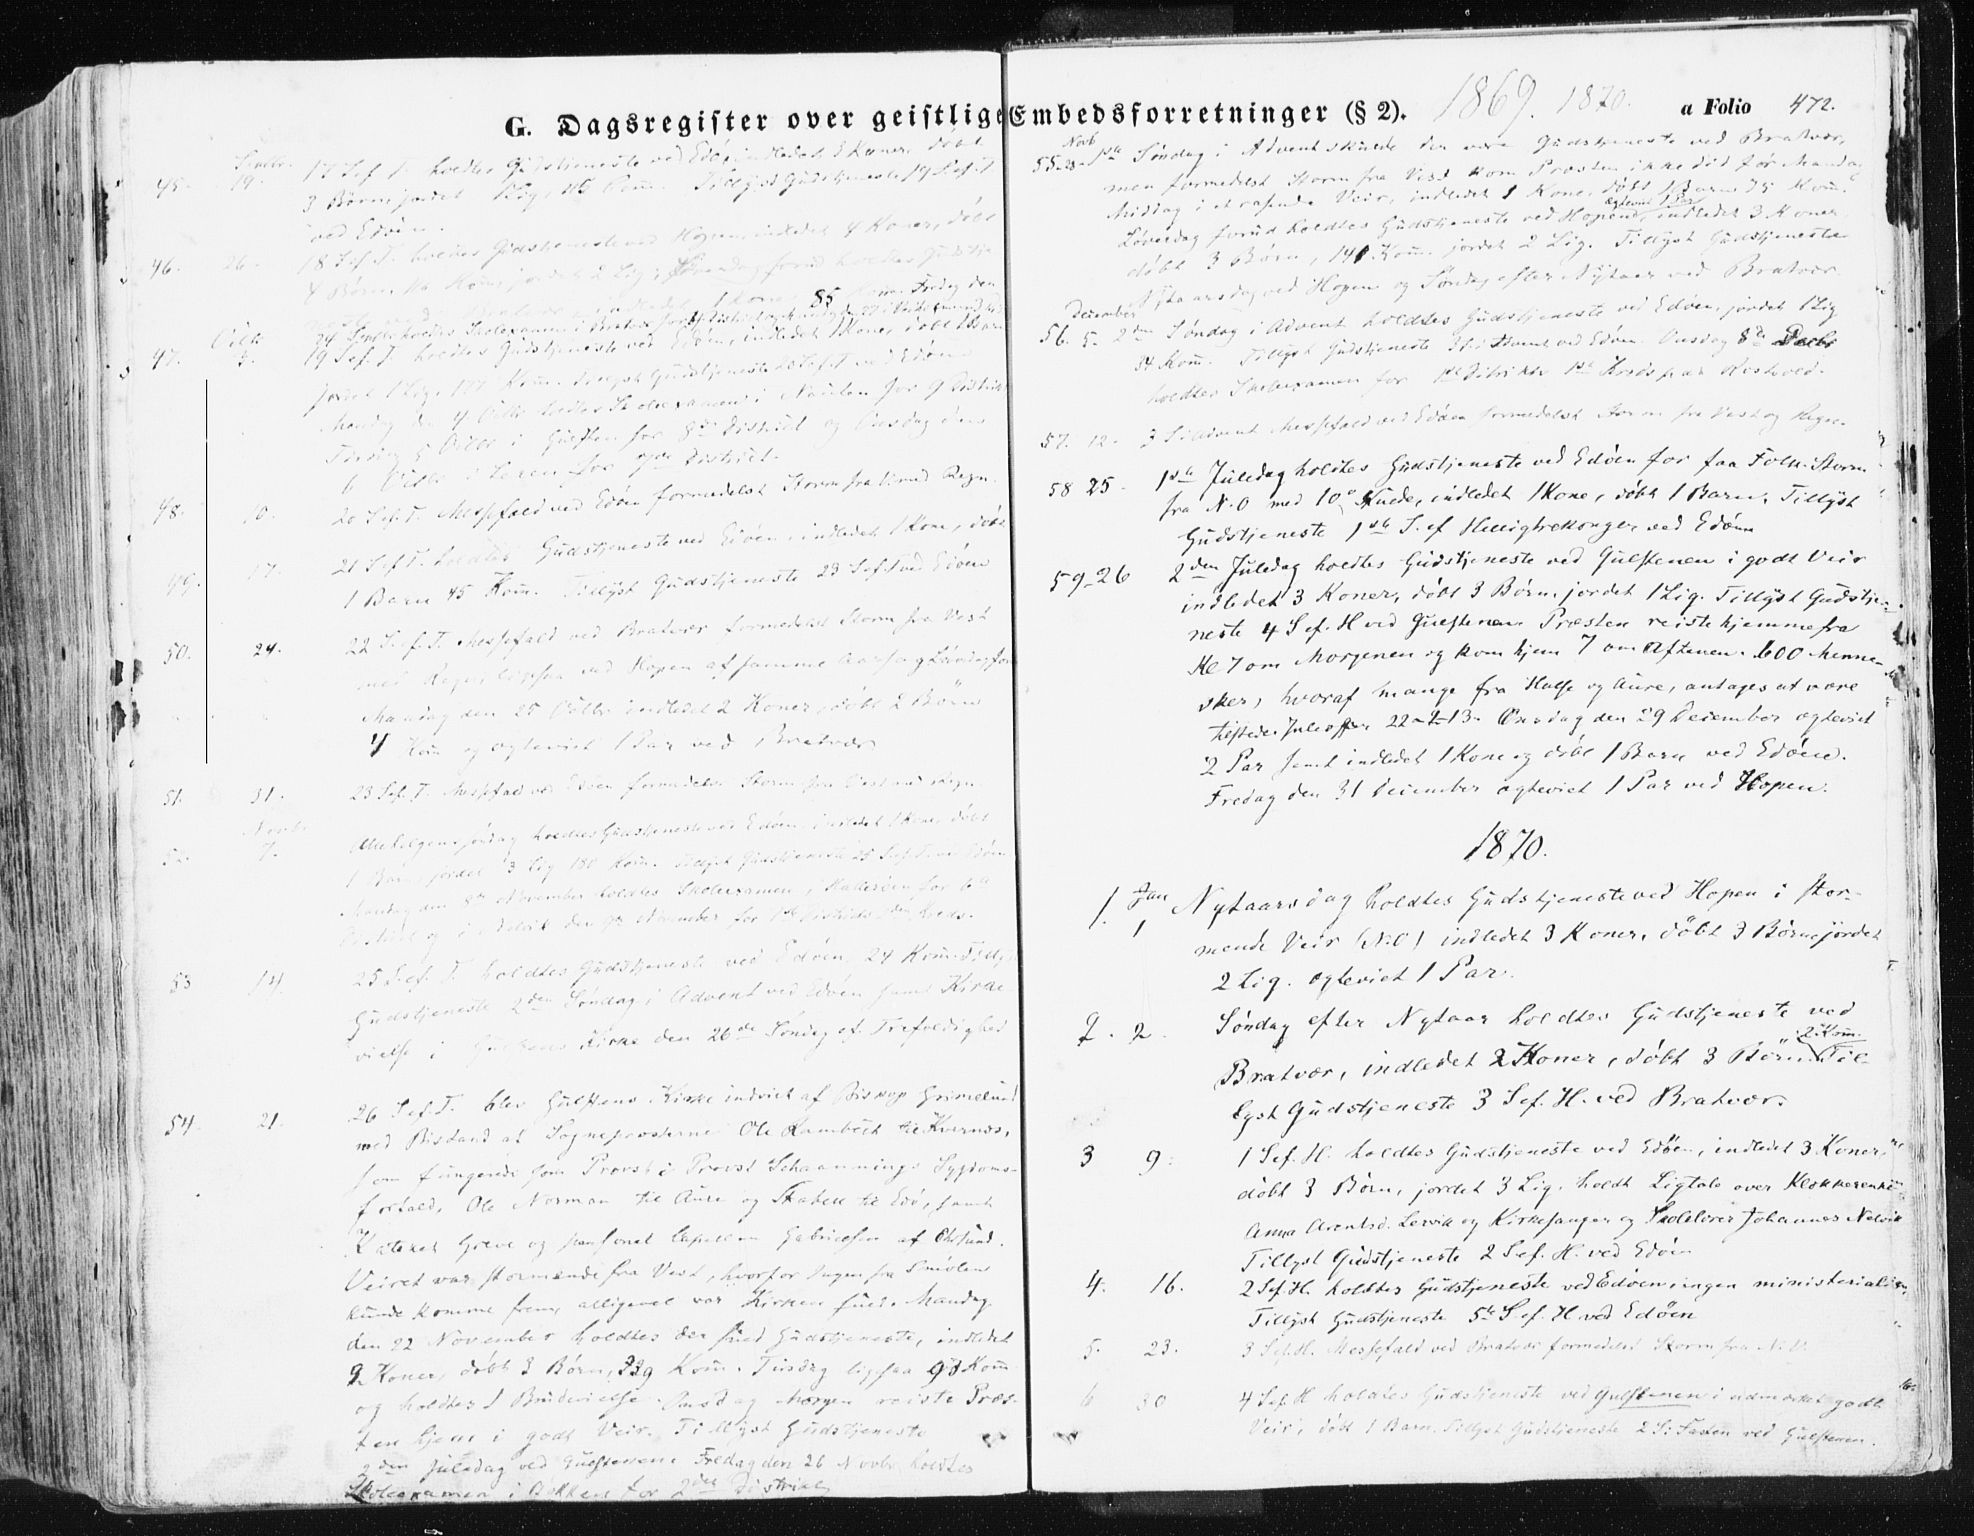 G. Dagsregister over geistlige Embedsforretninger (§ 2). 1869. 1870. a Folio 472.
45. Septbr. 19. 17 S. ef. T. holdtes Gudstjeneste ved Edøen, indledet Koner, døbt
3 Børn, jordet Lig, Kom. Tillyst Gudstjeneste 19 S. ef. T
ved Edøen.
46. 26. 18 S. ef. T. holdtes Gudstjeneste ved Hopen, indledet 4 Koner, døbt
4 Børn, Kom, jordet 2 Lig, Løverdag forud holdtes Gudstje
indledet 1 Kone 85 Kom. Fredag den
24 Septbr holdtes Skoleexamen i Bratvær for
47. Octbr 3. 19 S. ef. T. holdtes Gudstjeneste ved Edøen, indledet 1 Kone, døbt 1 Barn
jordet 1 Lig, Kom. Tillyst Gudstjeneste ved Edøen
Mandag den 4 Octbr holdtes Skoleexamen i for 9 District
Tirsdag 5 Octbr i Gulsten for 8de District og Onsdag den
6 Octbr i for 7de District.
48. 10. 20 S. ef. T. Messefald ved Edøen formedelst Storm fra V. med Regn.
49. 17. 21 S. ef. T. holdtes Gudstjeneste ved Edøen, indledet 1 Kone, døbt
1 Barn 45 Kom. Tillyst Gudstjeneste 23 S. ef. T ved Edøen
50. 24. 22 S. ef. T. Messefald ved Bratvær formedelst Storm fra Vest
med Regn, ligesaa ved Hopen af samme Aarsag Løverdag for
Mandag den 25 Octbr indledet 2 Koner, døbt 2 Børn
4 Kom og egteviet 1 Par ved Bratvær
51. 31. 23 S. ef. T. Messefald ved Edøen formedelst Storm fra Vest med Regn.
52. Novbr 7. Allehelgens søndag holdtes Gudstjeneste ved Edøen, indledet 1 Kone, døbt
1 Barn, jordet 3 Lig 180 Kom. Tillyst Gudstjeneste 25 S. ef. T. ved Edøen
Mandag den 8de November holdtes Skoleexamen i for 6te
District og i den 9de November for 1ste Districts Kreds.
53 14 25 S. ef. T. holdtes Gudstjeneste ved Edøen, 24 Kom. Tillyst
Gudstjeneste 2den Søndag i Advent ved Edøen samt Kirke
vielse i Gulstens Kirke den 26de Søndag ef. Trefoldighed
54. 21. 26 S. ef. T. blev Gulstens Kirke indviet af Biskop Grimelund
med Bistand af Sognepræsterne Ole til Kvernes,
som fungerede som Provst i Provst Schaannings Sygdoms-
forfald, Ole Norman til Aure og til Edø, samt
Kateket Greve og personel Capellan Gabrielsen af Chrsund.
Veiret var stormende fra Vest, hvorfor Ingen fra Smølen
kunde komme frem, alligevel var Kirken fuld. Mandag
den 22 November holdtes der fuld Gudstjeneste, indledet
9 Koner, døbt 3 Børn, 239 Kom. Tirsdag ligesaa 98 Kom
og holdtes 1 Brudevielse. Onsdag Morgen reiste Præs-
ten hjem i godt Veir. Tillyst Gudstjeneste
2den Juledag ved Gulstenen. Fredag den 26 Novbr holdtes
Skoleexamen i for 2den District
55. Novb 28. 1ste Søndag i Advent skulde der være Gudstjeneste ved Bratvær,
men formedelst Storm fra Vest kom Præsten ikke did før Mandag
Middag i et rasende Veir, indledet 1 Kone, døbt 1 Barn, 75 Kom.
Løverdag forud holdtes Gudstjeneste ved Hopen, egteviet 1 Par, indledet 3 Koner
døbt 3 Børn, 141 Kom. jordet 2 Lig. Tillyst Gudstjeneste
Nytaarsdag ved Hopen og Søndag efter Nytaar ved Bratvær.
56. December 5. 2den Søndag i Advent holdtes Gudstjeneste ved Edøen, jordet 1 Lig
84 Kom. Tillyst Gudstjeneste 3 S. i Advent ved Edøen. Onsdag 8de Decbr
holdtes Skoleexamen for 1ste District 1ste Kreds paa
57. 12. 3 S. i Advent Messefald ved Edøen formedelst Storm fra Vest og Regn.
58 25. 1ste Juledag holdtes Gudstjeneste ved Edøen for faa Folk. Storm
fra N.O med 10° Kulde, indledet 1 Kone, døbt 1 Barn. Tillyst
Gudstjeneste 1ste S. ef Helligtrekonger ved Edøen
59. 26 2den Juledag holdtes Gudstjeneste ved Gulstenen i godt Veir
indledet 3 Koner, døbt 3 Børn, jordet 1 Lig. Tillyst Gudstje-
neste 4 S. ef. H ved Gulstenen. Præsten reiste hjemmefra
Kl 7 om Morgenen og kom hjem 7 om Aftenen. 600 Menne-
sker, hvoraf mange fra Halse og Aure, antages at være
tilstede. Juleoffer 22-2-13. Onsdag den 29 December egteviet
2 Par samt indledet 1 Kone og døbt 1 Barn ved Edøen.
Fredag den 31 December egteviet 1 Par ved Hopen.
1870.
1. Jan 1 Nytaarsdag holdtes Gudstjeneste ved Hopen i stor-
mende Veir (N.O) indledet 3 Koner, døbt 3 Børn jordet
2 Lig. egteviet 1 Par.
2. 2. Søndag efter Nytaar holdtes Gudstjeneste ved
Bratvær, indledet 2 Koner, døbt 3 Børn. 2 Kom. Til-
lyst Gudstjeneste 3 S. ef. H. ved Bratvær.
3 9. 1 S. ef. H. holdtes Gudstjeneste ved Edøen, indledet 3 Koner,
døbt 3 Børn, jordet 3 Lig, holdt Ligtale over Klokkerenke
Anna Arentsd. Lervik og Kirkesanger og Skolelærer Johannes Nelvik
Tillyst Gudstjeneste 2 S. ef. H. ved Edøen
4. 16. 2 S. ef. H. holdtes Gudstjeneste ved Edøen ingen ministerialier,
Tillyst Gudstjeneste 5te S. ef. H ved Edøen
5. 23. 3 S. ef. H. Messefald ved Bratvær formedelst Storm fra N.V.
6 30 4 S. ef H holdtes Gudstjeneste ved Gulstenen i udmærket godt
Veir, døbt 1 Barn. Tillyst Gudstjeneste 2 S. i Fasten ved Gulstenen.